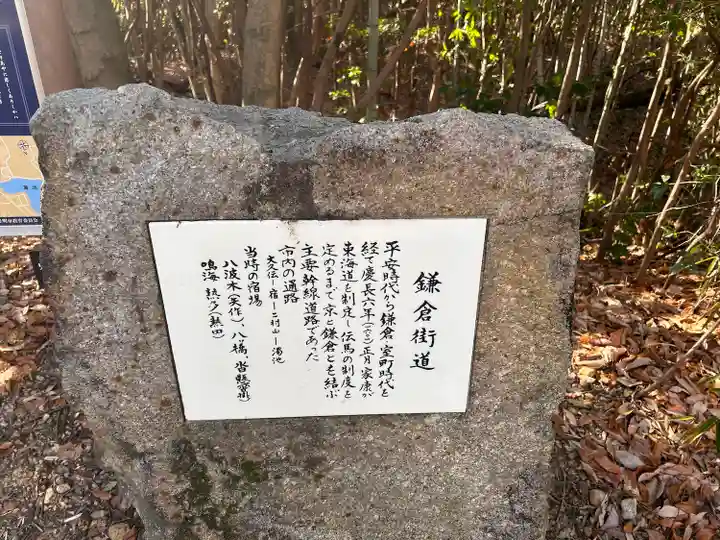 鎌倉街道
平安時代から鎌倉、室町時代と
経て慶長六年(一六〇一)正月 家康が
東海道を制定し伝馬の制度を
定めるまで京と鎌倉とを結ぶ
主要幹線道路であった
市内の通路
大久伝ー宿ー二村山ー濁池
当時の宿場
八波木(矢作)、八橋、沓縣
鳴海 熱乃(熱田)